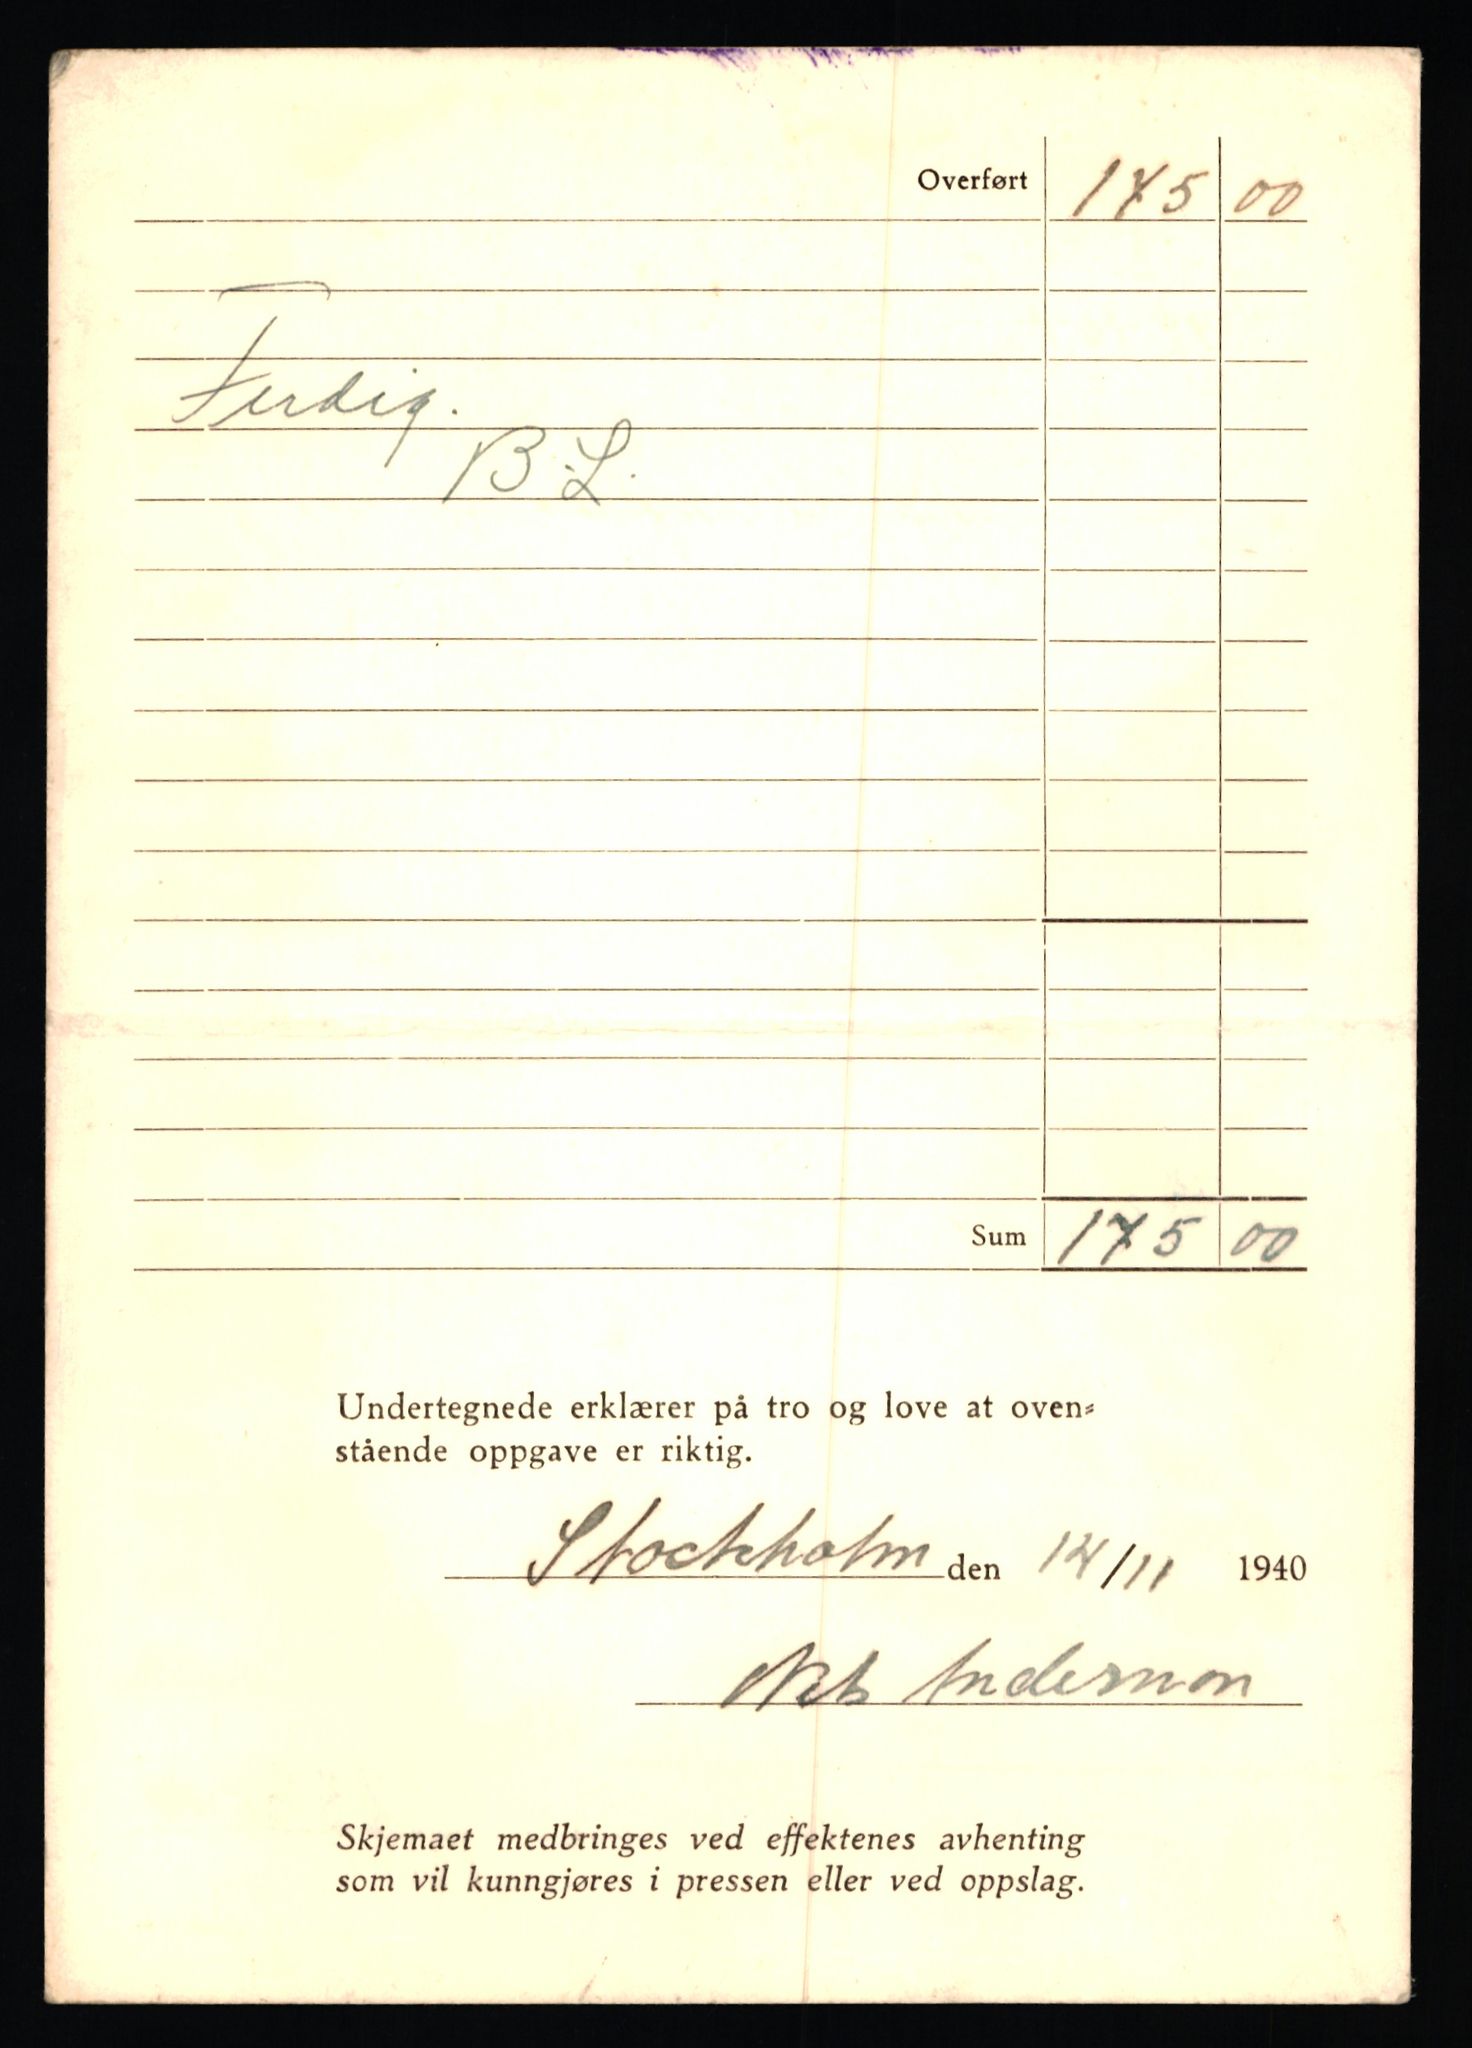 Overført 175 00
Ferdig.
B.L.
Sum 175 00
Undertegnede erklærer på tro og love at oven-
stående oppgave er riktig.
Stockholm den 14/11 1940
Skjemaet medbringes ved effektenes avhenting
som vil kunngjøres i pressen eller ved oppslag.